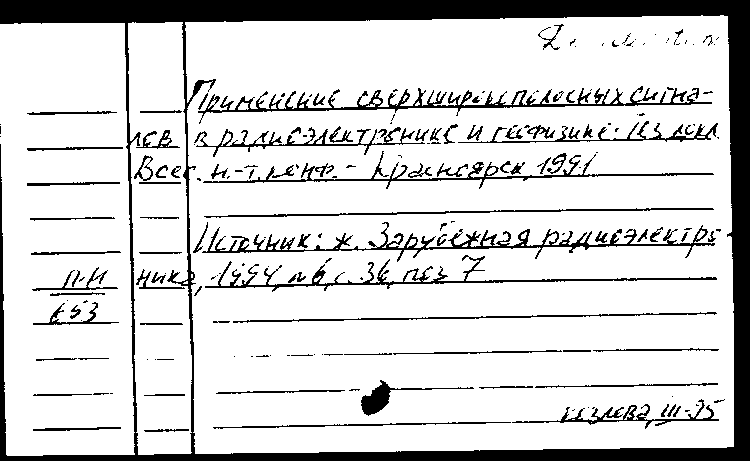 Применение сверхширокополосных сигна-
лов в радиоэлектронике и геофизике: Тез. докл.
Всес. н.-т. конф. - Красноярск, 1991
Источник: ж. Зарубежная радиоэлектро-
П-И ника, 1994, №6, с. 36, поз 7
653
Козлова, III-95